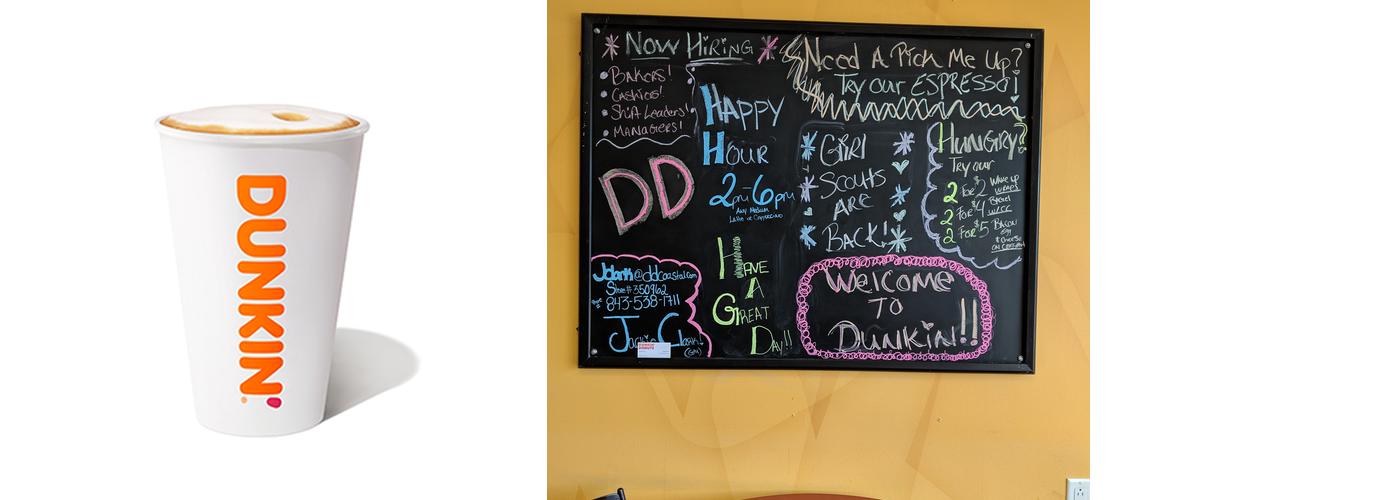 DUNKIN'
Now Hiring
Bakers!
Cashiers!
Shift Leaders!
Managers!
DD
Jclark@ddcoastal.com
Store # 350962
843-538-1711
Jackie Clark!
(GM)
Happy
Hour
2pm-6pm
Any Medium
Latte or Cappuccino
Have
A
Great
Day!!
Need A Pick Me Up?
Try our ESPRESSO!
Girl
Scouts
Are
Back!
Hungry?
Try our
2 for $2 Wake up
Wraps
2 For $4
2 For $5 Bacon
egg
& Cheese
on Croissant
Welcome
To
Dunkin!!